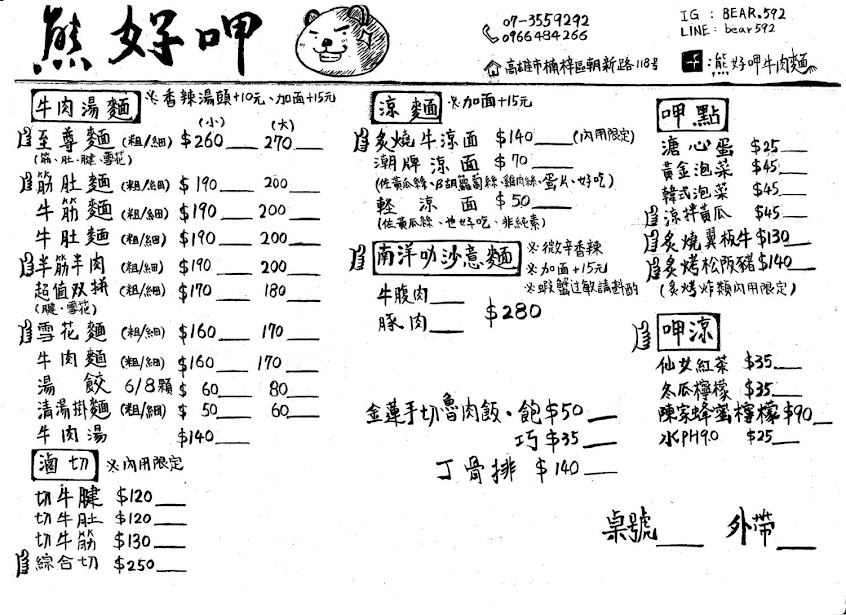 熊好呷
07-3559292
0966484266
高雄市楠梓區朝新路118号
IG : BEAR.592
LINE: bear592
f :熊好呷牛肉麵
牛肉湯麵 ※香辣湯頭+10元、加面+15元
(小) (大)
至尊麵 (粗/細) $260 270
(筋、肚、腱、雪花)
筋肚麵 (粗/細) $190 200
牛筋麵 (粗/細) $190 200
牛肚麵 (粗/細) $190 200
半筋半肉 (粗/細) $190 200
超值双拼 (粗/細) $170 180
(腱、雪花)
雪花麵 (粗/細) $160 170
牛肉麵 (粗/細) $160 170
湯餃 6/8顆 $ 60 80
清湯掛麵 (粗/細) $ 50 60
牛肉湯 $140
滷切 ※內用限定
切牛腱 $120
切牛肚 $120
切牛筋 $130
綜合切 $250
涼麵 ※加面+15元
炙燒牛涼面 $140 (內用限定)
潮牌涼面 $70
(佐黃瓜絲、胡蘿蔔絲、雞肉絲、蛋片、好吃)
軽涼面 $50
(佐黃瓜絲、也好吃、非純素)
南洋叻沙意麵 ※微辛香辣
※加面+15元
※蝦蟹过敏請斟酌
牛腹肉
豚肉 $280
金蓮手切魯肉飯・飽$50
巧$35
丁骨排 $140
呷點
溏心蛋 $25
黃金泡菜 $45
韓式泡菜 $45
涼拌黃瓜 $45
炙燒翼板牛$130
炙烤松阪豬$140
(炙烤炸類內用限定)
呷涼
仙女紅茶 $35
冬瓜檸檬 $35
陳家蜂蜜檸檬$90
水PH9.0 $25
桌號 外帶